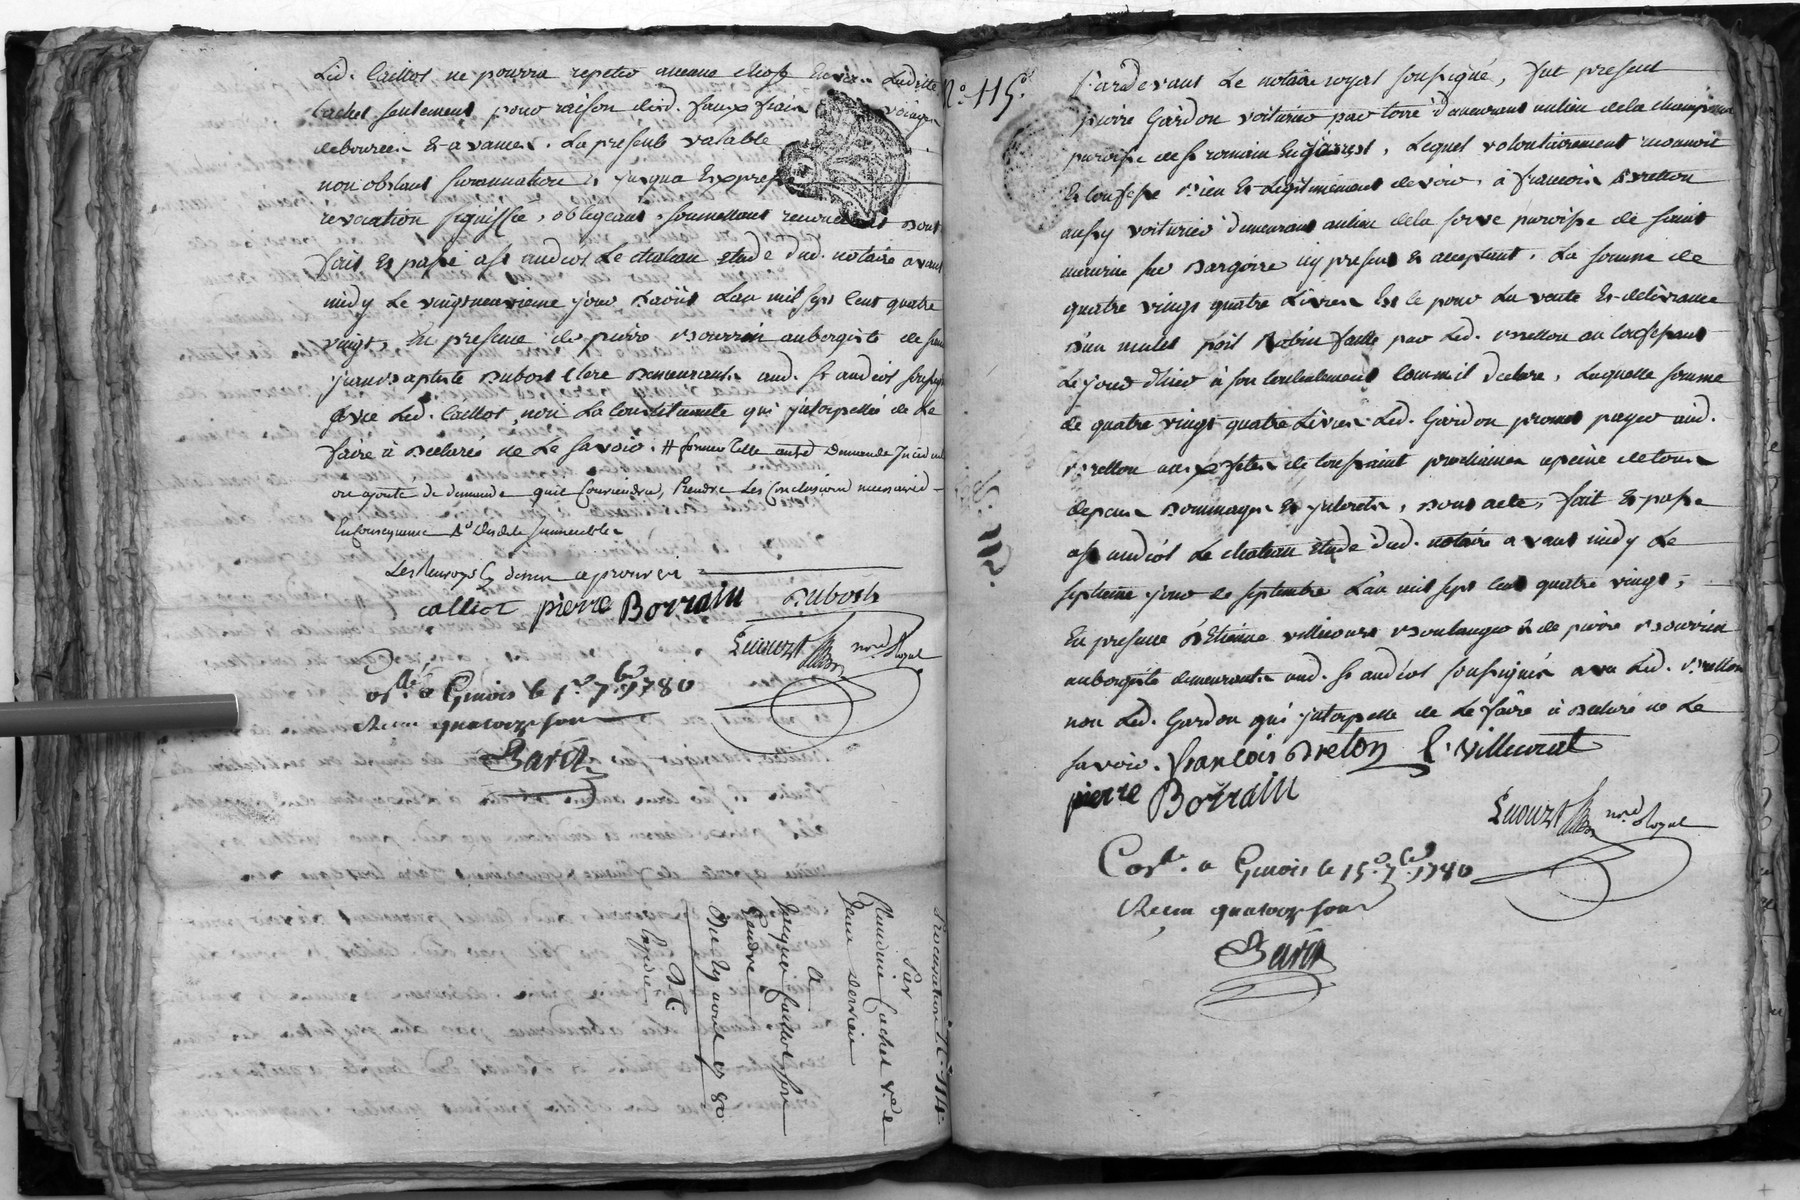 Led. Caillot ne pourra repeter aucune chose Envers Laditte
Cachet seulement pour raison desd. faux fraix voiages
debourcés Et avances. La presente valable
non obstant surannation & jusqua Expresse
revocation signiffiée, obligeant, soumettant renonceant Dont
fait Et passé a St andeol Le chateau Etude dud. notaire avant
midy Le vingt neuvieme jour D'aoüst L'an mil sept Cent quatre
vingt, En presence de pierre Bourrin aubergiste de
jean Baptiste Dubost Clerc Demeurants aud. St andeol soussignés
avec Led. Caillot, non La Constituante qui jnterpellée de Le
faire à Déclaré ne Le savoir. # former telle autre Demande Incidente
ou ajouté de demande quil Conviendra, Prendre Les Conclusions necessaires
En Consequence
Les Renvoys cy dessus approuvés
Calliot pierre Borrain Dubost
nore. Royal
Collé à Givors le 1er. 7bre 1780
Recu quatorze sous
Procuration N° 114
Par
Claudine Cachet ve. de
A
Jacques Caillot son
Gendre
Du 29 aout 1780
N° 115e.
Pardevant Le notaire royal soussigné, fut present
pierre Gardon voiturier par terre demeurant au lieu de la
paroisse de St romain En jarrest, Lequel volontairement reconnoit
Et Confesse Bien Et Legitimement devoir, à francois Bretton
aussy voiturier demeurant au lieu de la forre paroisse de saint
maurice sur Dargoire icy present Et acceptant, La somme de
quatre vingt quatre Livres Et ce pour La vente Et delivrance
D'un mulet poil Robin faitte par Led. Bretton au Confessant
Le jour d'hier à son Contentement Comme il declare, Laquelle somme
de quatre vingt quatre Livres Led. Gardon promet payer aud.
Bretton aux fetes de toussaint prochaines apeine de tous
depens Dommages Et jnterets, Dont acte, fait Et passé
a St andéol Le chateau Etude dud. notaire avant midy Le
septieme jour de septembre L'an mil sept Cent quatre vingt,
En presence d'Etienne Villecourt Boulanger & de pierre Bourrin
aubergiste demeurants aud. St andéol soussignés avec Led. Bretton
non Led. Gardon qui jnterpellé de Le faire à Déclaré ne Le
savoir. francois Breton E. Villecurat
pierre Borrain
nore. Royal
Collé. a Givors le 15e. 7bre 1780
Recu quatorze sous